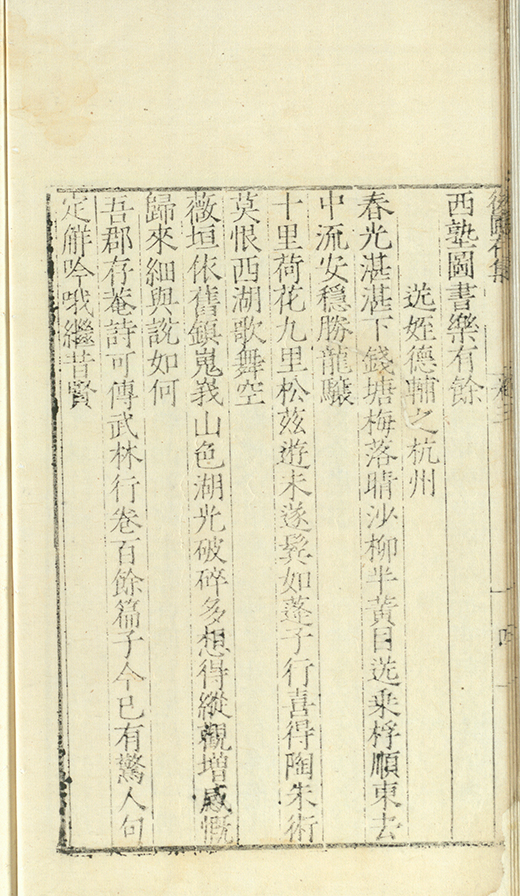 西塾圖書樂有餘
送姪德輔之杭州
春光湛湛下錢塘梅落晴沙柳半黃目送乘桴順東去
中流安穩勝龍驤
十里荷花九里松茲遊未遂鬂如蓬子行喜得陶朱術
莫恨西湖歌舞空
薇垣依舊鎮嵬峩山色湖光破碎多想得縱觀增感慨
歸來細與說如何
吾郡存菴詩可傳武林行卷百餘篇子今已有驚人句
定觧吟哦繼昔賢